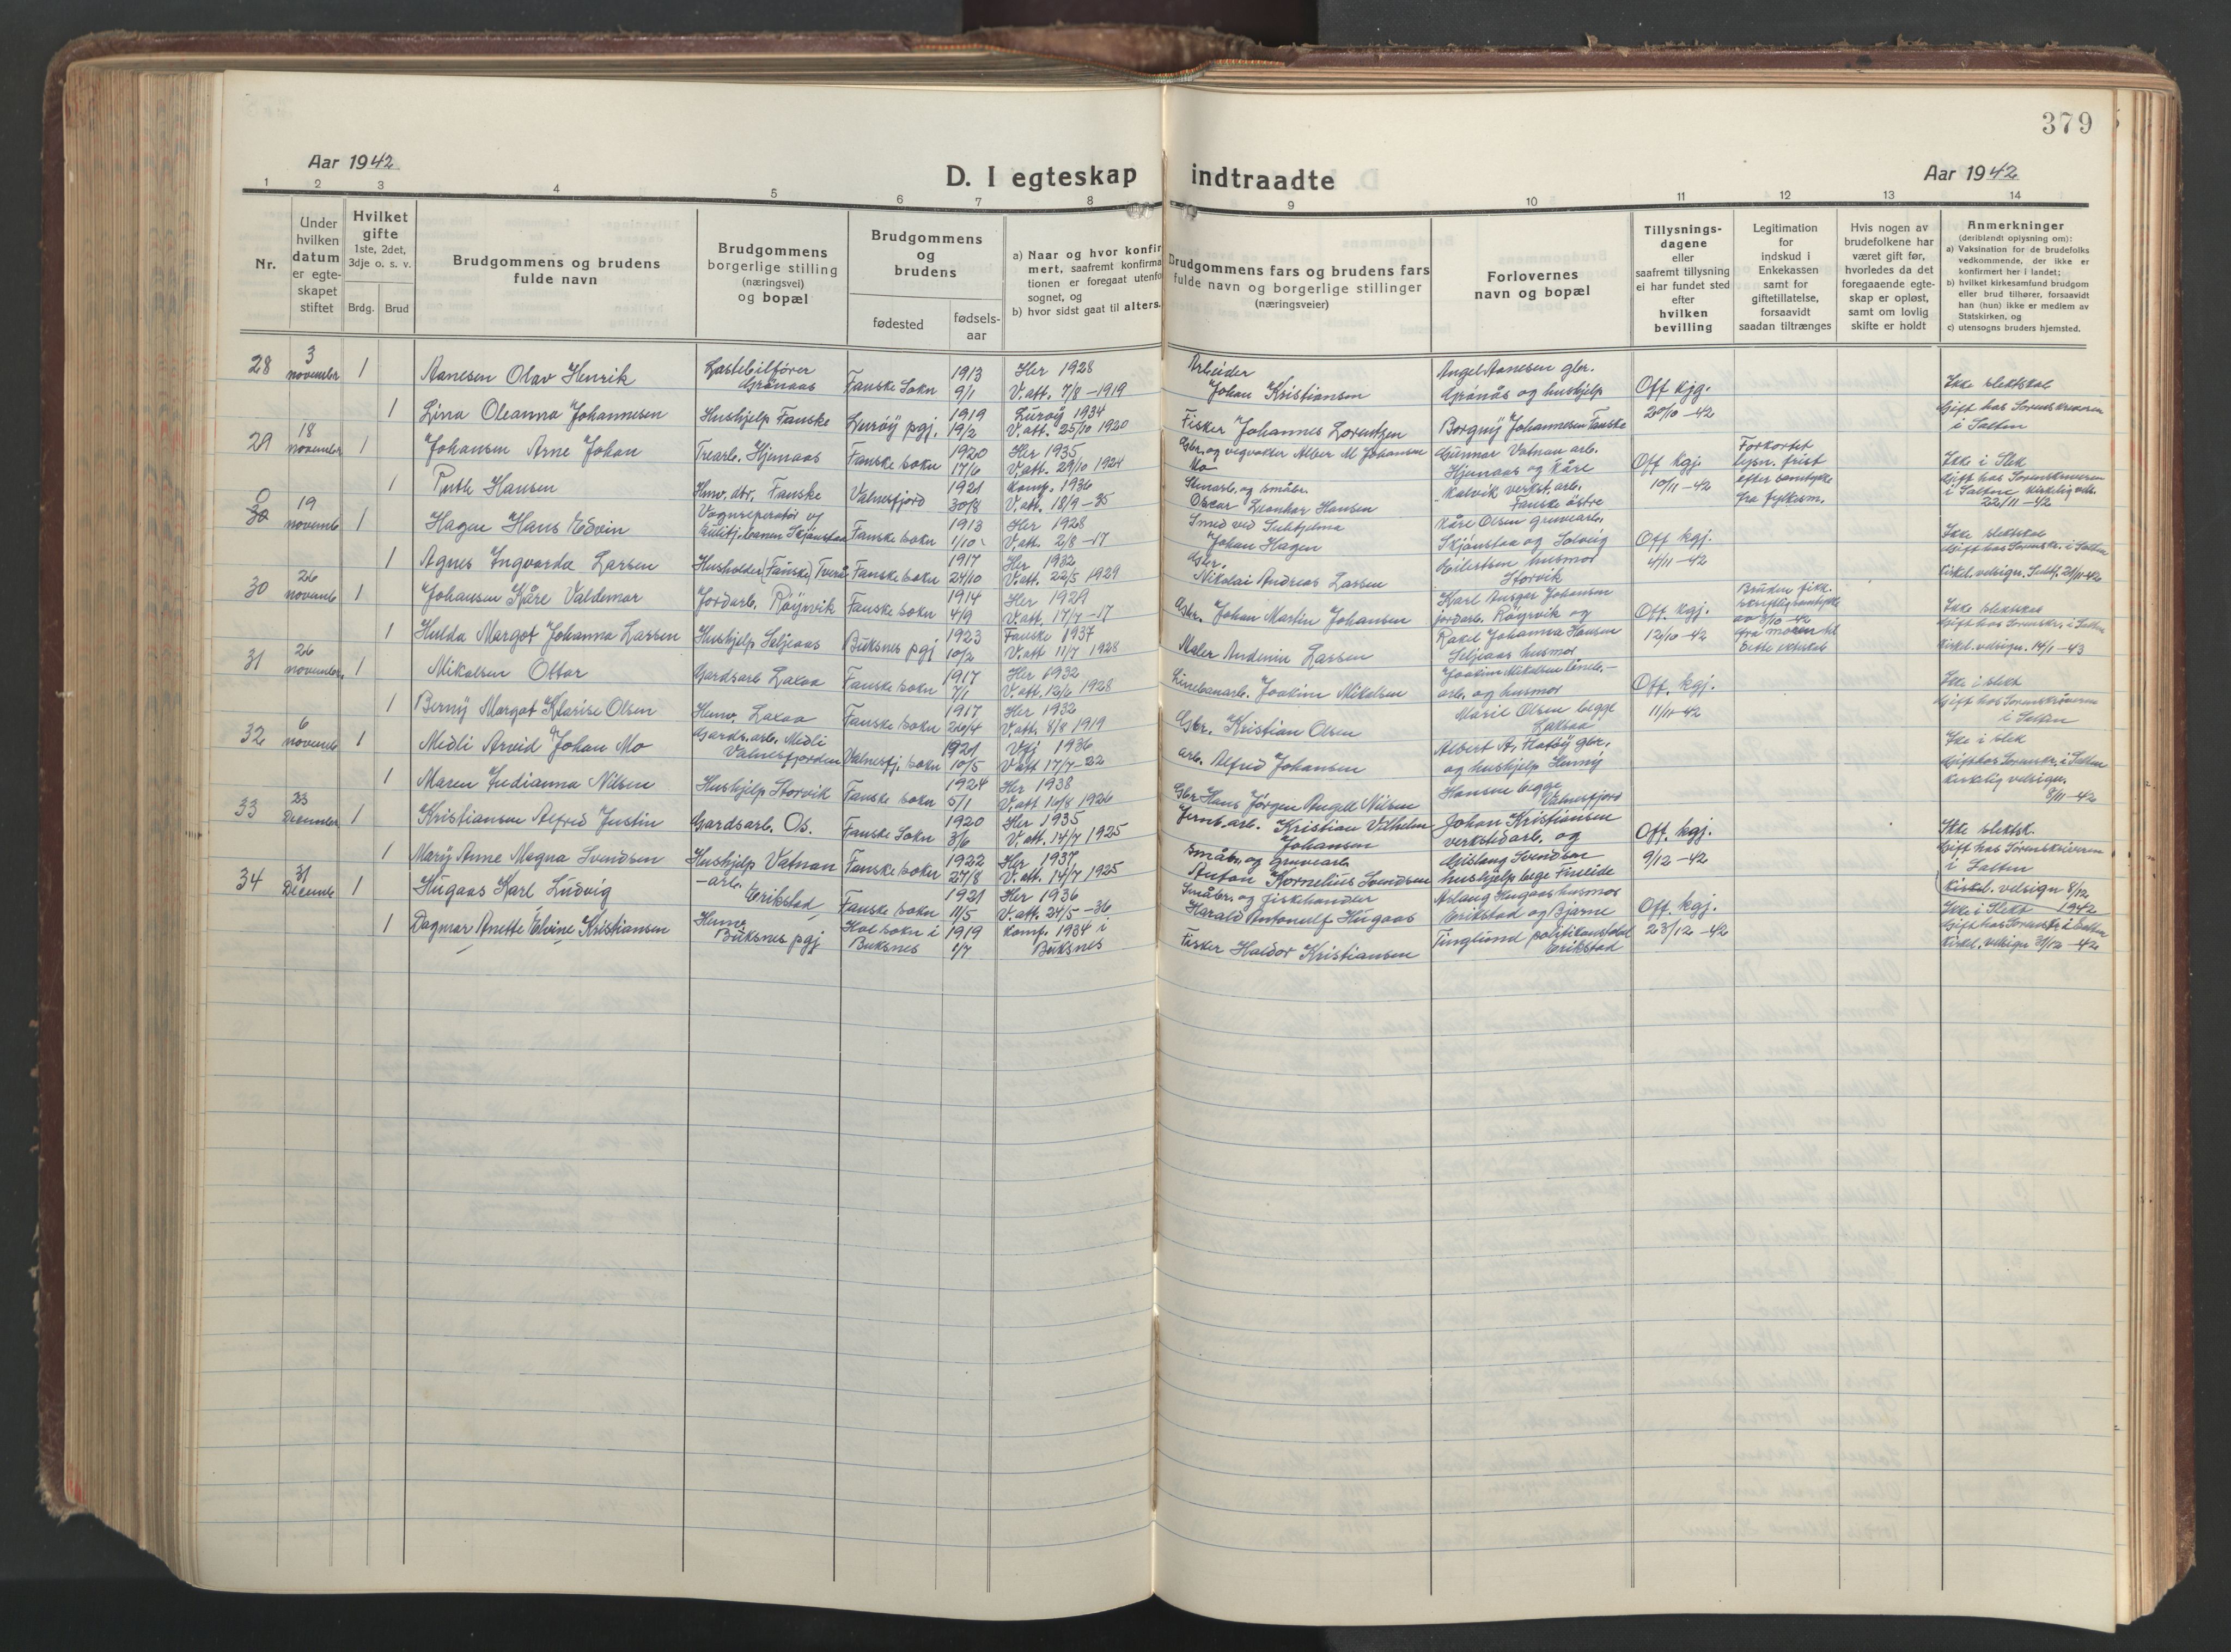 379
Aar 1942
D. I egteskap indtraadte
Aar 1942
1 2 3 4 5 6 7 8 9 10 11 12 13 14
Nr.
Under
hvilken
datum
er egte-
skapet
stiftet
Hvilket
gifte
1ste, 2det,
3dje o. s. v.
Brdg. Brud
Brudgommens og brudens
fulde navn
Brudgommens
borgerlige stilling
(næringsvei)
og bopæl
Brudgommens
og
brudens
fødested
fødsels-
aar
a) Naar og hvor konfir
mert, saafremt konfirma
tionen er foregaat utenfo
sognet, og
b) hvor sidst gaat til alters.
Brudgommens fars og brudens fars
fulde navn og borgerlige stillinger
(næringsveier)
Forlovernes
navn og bopæl
Tillysnings-
dagene
eller
saafremt tillysning
ei har fundet sted
efter
hvilken
bevilling
Legitimation
for
indskud i
Enkekassen
samt for
giftetillatelse,
forsaavidt
saadan tiltrænges
Hvis nogen av
brudefolkene har
været gift før,
hvorledes da det
foregaaende egte-
skap er opløst,
samt om lovlig
skifte er holdt
Anmerkninger
(deriblendt oplysning om):
a) Vaksination for de brudefolks
vedkommende, der ikke er
konfirmert her i landet;
b) hvilket kirkesamfund brudgom
eller brud tilhører, forsaavidt
han (hun) ikke er medlem av
Statskirken, og
c) utensogns bruders hjemsted.
28
3
november
1
Aanesen Olav Henrik
Lastebilfører
Grønaas
Fauske Sokn
1913
9/1
Her 1928
V. att. 7/8 – 1919
Arbeider
Johan Kristiansen
Angel Aanesen gbr.
Grønås og hushjelp
Off kgj.
20/10 – 42
Ikke slektskal
1
Lina Oleanna Johannesen
Hushjelp Fauske
Lurøy pgj.
1919
19/2
Lurøy 1934
V. att. 25/10 1920
Fisker Johannes Lorentzen
Borgny Johannesen Fauske
Gift hos Sorenskriveren
i Salten
29
18
november
1
Johansen Arne Johan
Trearb. Hjemaas
Fauske sokn
1920
17/6
Her 1935
V. att. 29/10 1924
Gbr. og vegvokter Alber M Johansen
Mo
Gunnar Vatnan arb.
Hjemaas og Kåre
Off Kgj.
10/11 – 42
Forkortet
lysn. frist
efter samtykke
fra fylkesm.
Ikke i Slek
1
Ruth Hansen
Hmv. dtr. Fauske
Valnesfjord
1921
30/8
Komf. 1936
V. att. 18/9 – 35
Stenarb. og småbr.
Oscar Leonhar Hansen
Kalvik verkst. arb.
Fauske østre
Gift hos Sorenskriveren
i Salten kirkelig vels.
22/11 – 42
30
19
novembe
1
Hagen Hans Edvin
Vognreperatør v/
Fauske sokn
1913
1/10
Her 1928
V. att. 2/8 – 17
Smed ved Sulitjelma
Johan Hagen
Kåre Olsen gruvearb.
Skjønstaa og Solveig
Off kgj.
4/11 – 42
Ikke slektskal
1
Agnes Ingvarda Larsen
Husholder (Fauske) Tverå
Fauske sokn
1917
24/10
Her 1932
V. att. 22/5 1929
Gbr.
Nikolai Andreas Larsen
Eilertsen husmor
Storvik
Gift hos Sorenskr. i Salten
Kirkel. velsign. Sulitj. 21/11-42
30
26
novembe
1
Johansen Kåre Valdemar
Jordarb. Røyrvik
Fauske sokn
1914
4/9
Her 1929
V. att. 17/7 – 17
Gbr. Johan Martin Johansen
Karl Ansgar Johansen
jordarb. Røyrvik og
Off. kgj.
12/10 – 42
Bruden fikk
skriftlig samtykke
av 8/10 – 42
fra moren til
dette ekteskab
Ikke slektskal
1
Hulda Margot Johanna Larsen
Hushjelp Seljeaas
Buksnes pgj
1923
10/2
Fauske 1937
V. att 11/7 1928
Maler Andenin Larsen
Rakel Johanna Hansen
Seljeaas husmor
Gift hos Sorenskr. i Salten
Kirkel. velsign. 14/1 – 43
31
26
november
1
Mikalsen Ottar
Gardsarb Laxaa
Fauske sokn
1917
7/1
Her 1932
V. att. 12/6 1928
Linebanarb. Joakim Mikalsen
Joakim Mikalsen
arb. og husmor
Off. kgj.
11/11-42
Ikke i slekt
1
Berny Margot Klarise Olsen
Hmv. Laxaa
Fauske sokn
1917
26/4
Her 1932
V. att. 8/8 1919
Gbr. Kristian Olsen
Marie Olsen begge
Laksaa
Gift hos Sorenskriveren
i Salten
32
6
novembe
1
Medli Arvid Johan Mo
Gards. arb. Medli
Valnesfjorden
Valnesfj. sokn
1921
10/5
Vfj 1936
V. att 17/7 – 22
arb. Alfred Johansen
Albert A. Flatøy gbr.
og hushjelp Henny
Ikke i slek
1
Maren Judianna Nilsen
Hushjelp Storvik
Fauske sokn
1924
5/1
Her 1938
V. att 16/8 1926
Gbr Hans Jørgen Angell Nilsen
Hansen begge
Valnesfjord
Gift hos Sorenskr. i Salten
kirkelig velsign.
8/11 – 42
33
23
December
1
Kristiansen Alfred Justin
Gardsarb. Os.
Fauske Sokn
1920
3/6
Her 1935
V. att. 14/7 1925
Jernb. arb. Kristian Vilhelm
Johansen
Johan Kristiansen
verkstedarb. og
Off. kgj.
9/12 – 42
Ikke slektsk.
1
Mary Anne Magna Svendsen
Hushjelp Vatnan
Fauske sokn
1922
27/8
Her 1937
V. att. 14/7 1925
Småbr. og gruvearb.
Anton Kornelius Svendsen
Gislaug Svendsen
hushjelp bege Fineide
Gift hos Sorenskriveren
i Salten
Kirkel. velsign 8/12
1942
34
31
Decembe
1
Hugaas Karl Ludvig
– arb.
Erikstad
Fauske sokn
1921
11/5
Her 1936
V. att. 24/5 – 36
Småbr. og fiskhandler
Harald Antonulf Hugaas
Aslaug Hugaas husmor
Erikstad og Bjarne
Off. kgj.
23/12 – 42
Ikke i Slekt
1
Dagmar Anette Elvine Kristiansen
Hmv.
Buksnes pgj
Hol sokn i
Buksnes
1919
1/7
Komf. 1934 i
Buksnes
Fisker Haldor Kristiansen
Tinglund politikonstabel
Erikstad
Gift hos Sorenskr i Salten
Kirkel. velsign 31/12 – 42